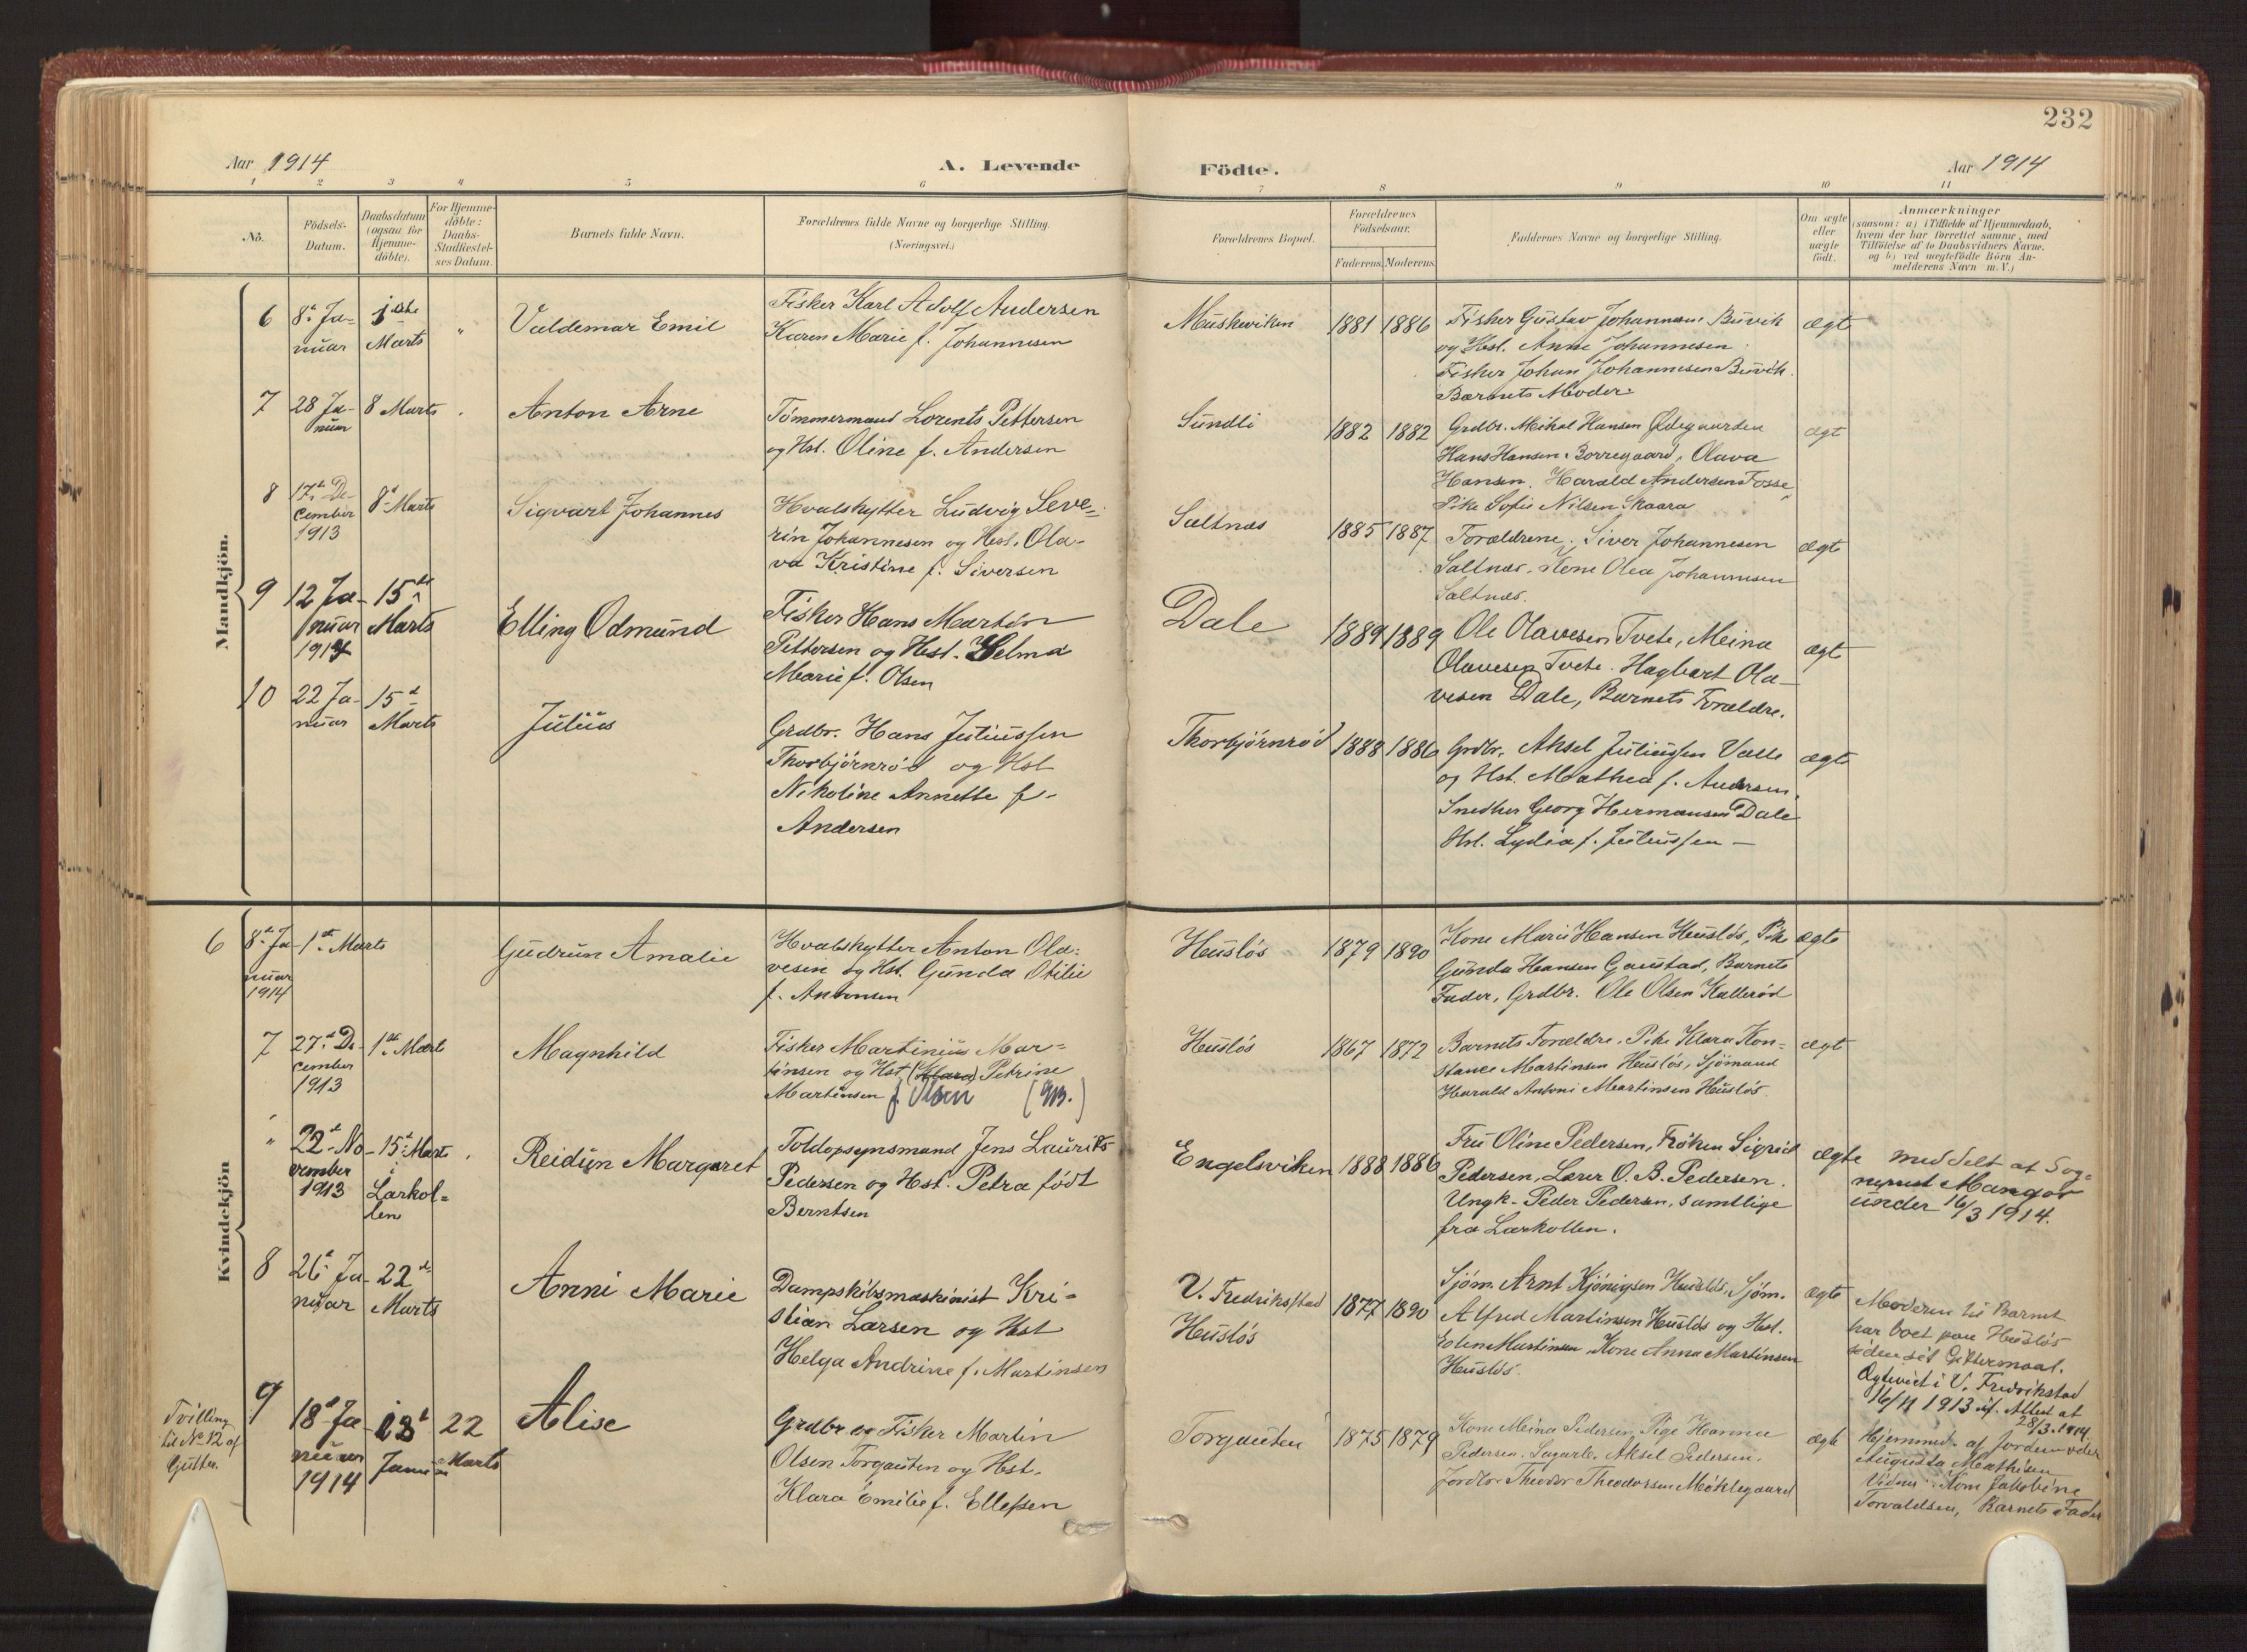 232
Aar 1914
A. Levende
Födte.
Aar 1914
1 2 3 4 5 6 7 8 9 10 11
No.
Födsels-
Datum.
Daabsdatum
(ogsaa for
Hjemme-
döbte).
For Hjemme-
döbte:
Daabs-
Stadfæstel-
ses Datum.
Barnets fulde Navn.
Forældrenes fulde Navne og borgerlige Stilling.
(Næringsvei.)
Forældrenes Bopæl.
Forældrenes
Födselsaar.
Faderens. Moderens.
Faddernes Navne og borgerlige Stilling.
Om ægte
eller
uægte
födt.
Anmærkninger
(saasom: a) i Tilfælde af Hjemmedaab,
hvem der har forrettet samme, med
Tilföielse af to Daabsvidners Navne.
og b) ved uægtefödte Börn An-
melderens Navn m. V.)
Mandkjön.
6
8de Ja-
nuar
1ste
Marts
"
Valdemar Emil
Fisker Karl Adolf Andersen
Karen Marie f. Johannesen
Muskeviken
1881 1886
Fisker Gustav Johannesen Buvik
og Hst. Anne Johannesen
Fisker Johan Johannesen Buvik.
Barnets Moder.
ægte
7
28 Ja-
nuar
8 Marts
Anton Arne
Tömmermand Lorents Pettersen
og Hst. Oline f. Andersen
Sundli
1882 1882
Grdbr. Mikal Hansen Ødegaarden
Hans Hansen Borregaard, Olava
Hansen, Harald Andersen Fosse,
Pike Sofie Nilsen Skaara
ægt
8
17de De-
cember
1913
8de Marts
Sigvart Johannes
Hvalskytter Ludvig Seve-
rin Johannesen og Hst. Ola-
va Kristine f. Siversen
Saltnæs
1885 1887
Forældrene. Siver Johannesen
Saltnæs. Kone Olea Johannesen
Saltnæs.
ægte
9
12 Ja-
nuar
1914
15de
Marts
Elling Odmund
Fisker Hans Martin
Pettersen og Hst. Helma
Marie f. Olsen
Dale
1889 1889
Ole Olavesen Tvete, Meina
Olavesen Tvete. Hagbart Ola-
vesen Dale, Barnets Forældre.
ægt
10
22 Ja-
nuar
15de
Marts
Julius
Grdbr. Hans Juliussen
Thorbjörnröd og Hst
Nikoline Annette f.
Andersen
Thorbjörnröd
1888 1886
Grdbr. Aksel Juliussen Valle
og Hst. Mathea f. Andersen.
Snedker Georg Hermansen Dale
Hst. Lydia f. Juliussen —
ægte
Kvindekjön
6
8de Ja-
nuar
1914
1ste Marts
Gudrun Amalie
Hvalskytter Anton Ola-
vesen og Hst. Gunda Otilie
f. Antonsen
Huslös
1879 1890
Kone Marie Hansen Huslös, Pike
Gunda Hansen Gaustad, Barnets
Fader, Grdbr. Ole Olsen Kallerød
ægte
7
27de De-
cember
1913
1ste Marts
Magnhild
Fisker Martinius Mar-
tinsen og Hst. (Klara) Petrine
Martinsen f. Olsen
Huslös
1867 1872
Barnets Forældre. Pike Klara Kon-
stance Martinsen Huslös, Sjömand
Harald Antoni Martinsen Huslös.
ægt
"
22de No-
vember
1913
15de Marts
i
Larkol-
len
Reidun Margaret
Toldopsynsmand Jens Laurits
Pedersen og Hst. Petra födt
Berntsen
Engelsviken
1888 1886
Fru Oline Pedersen, Fröken Sigrid
Pedersen, Lærer O. B. Pedersen.
Ungk. Peder Pedersen, samtlige
fra Larkollen.
ægte
meddelt af Sog-
neprest Mangor
under 16/3 1914.
8
26de Ja-
nuar
22de
Marts
Anni Marie
Dampskibsmaskinist Kri-
stian Larsen og Hst
Helga Andrine f. Martinsen
V. Fredriksstad
Huslös
1877 1890
Sjöm. Arnt Kjönigsen Huslös, Sjöm.
Alfred Martinsen Huslös og Hst.
Martinsen, Kone Anna Martinsen
Huslös.
ægte
Moderen til Barnet
har boet paa Huslös
siden sit Giftermaal.
Ægteviet i V. Fredrikstad
16/11 1913 if. Attest af
28/3. 1914.
Tvilling
til No 12 af
Gutter.
9
18de Ja-
nuar
1914
18de
Januar
22
Marts
Alise
Grdbr og Fisker Martin
Olsen Torgauten og Hst.
Klara Emilie f. Ellefsen
Torgauten
1875 1879
Kone Meina Pedersen, Pige Hanna
Pedersen. Sagarb. Aksel Pedersen.
Jordbr. Theodor Theodorsen Møklegaard
ægte
Hjemmed. af Jordemoder
Augusta Mathisen
Vidner: Kone Jakobine
Torvaldsen, Barnets Fader